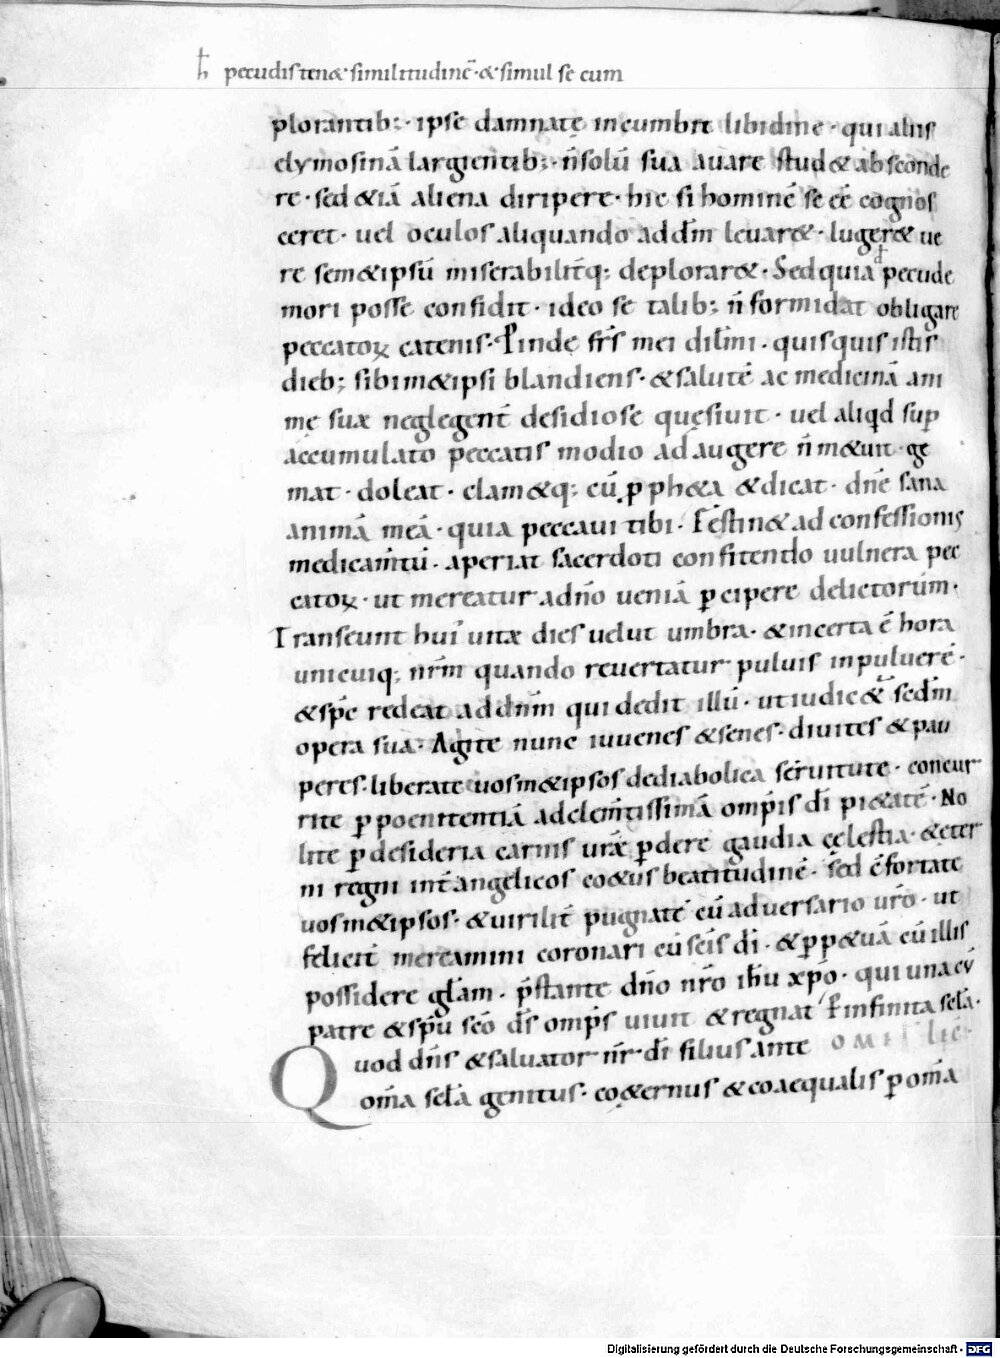 ħ pecudis ten& similitudinē· & simul se cum
plorantib;· ipse damnatę incumbit libidine· qui aliis
elymosinā largientib;· n̄ solū sua auare stud& absconde
re· sed &iā aliena diripere· hic si hominē se eē cognos
ceret· uel oculos aliquando ad dm̄ leuar&· luger& ue
re sem&ipsū miserabilit̄q; deplorar&· Sed quia đ pecude
mori posse confidit· ideo se talib; n̄ formidat obligare
peccatoꝝ catenis· Proinde frs̄ mei dilm̄i· quisquis istis
dieb; sibim&ipsi blandiens· & salutē ac medicinā ani
mę suæ neglegent̄ desidiose quęsiuit· uel aliqd sup
accumulato peccatis modio ad augere n̄ m&uit· ge
mat· doleat· clam&q; cū ꝓph&a & dicat· dn̄e sana
animā meā· quia peccaui tibi· Festin& ad confessionis
medicam̄tū· aperiat sacerdoti confitendo uulnera pec
catoꝝ· ut mereatur a dn̄o ueniā ꝑcipere delictorum·
Transeunt hui' uitæ dies uelut umbra· & incerta ē hora
unicuiq; nrm̄ quando reuertatur puluis in puluerē·
& spc̄ redeat ad dnm̄ qui dedit illū· ut iudic& sedm̄
opera sua· Agite nunc iuuenes & senes· diuites & pau
peres· liberate uosm&ipsos de diabolica seruitute· concur
rite ꝑ poenitentiā ad clem̄tissimā omp̄is dī pi&atē· No
lite ꝑ desideria carnis urǣ ꝑdere gaudia cęlestia· & eter
ni regni int̄ angelicos co&us beatitudinē· sed c̄fortate
uosm&ipsos· & uirilit̄ pugnate cū aduersario uro̅· ut
felicit̄ mereamini coronari cū scīs dī· & ꝑp&uā cū illis
possidere glam̄· p̄stante dn̄o nro̅ ihū xp̄o· qui una cū
patre & sp̄u sc̄o ds̄ omp̄s uiuit & regnat P infinita scl̄a·
Quod dn̄s & saluator nr̄· dī filius ante
om̄a scl̄a genitus· co&ernus & coaequalis ꝑ om̄a
Digitalisierung gefördert durch die Deutsche Forschungsgemeinschaft - DFG